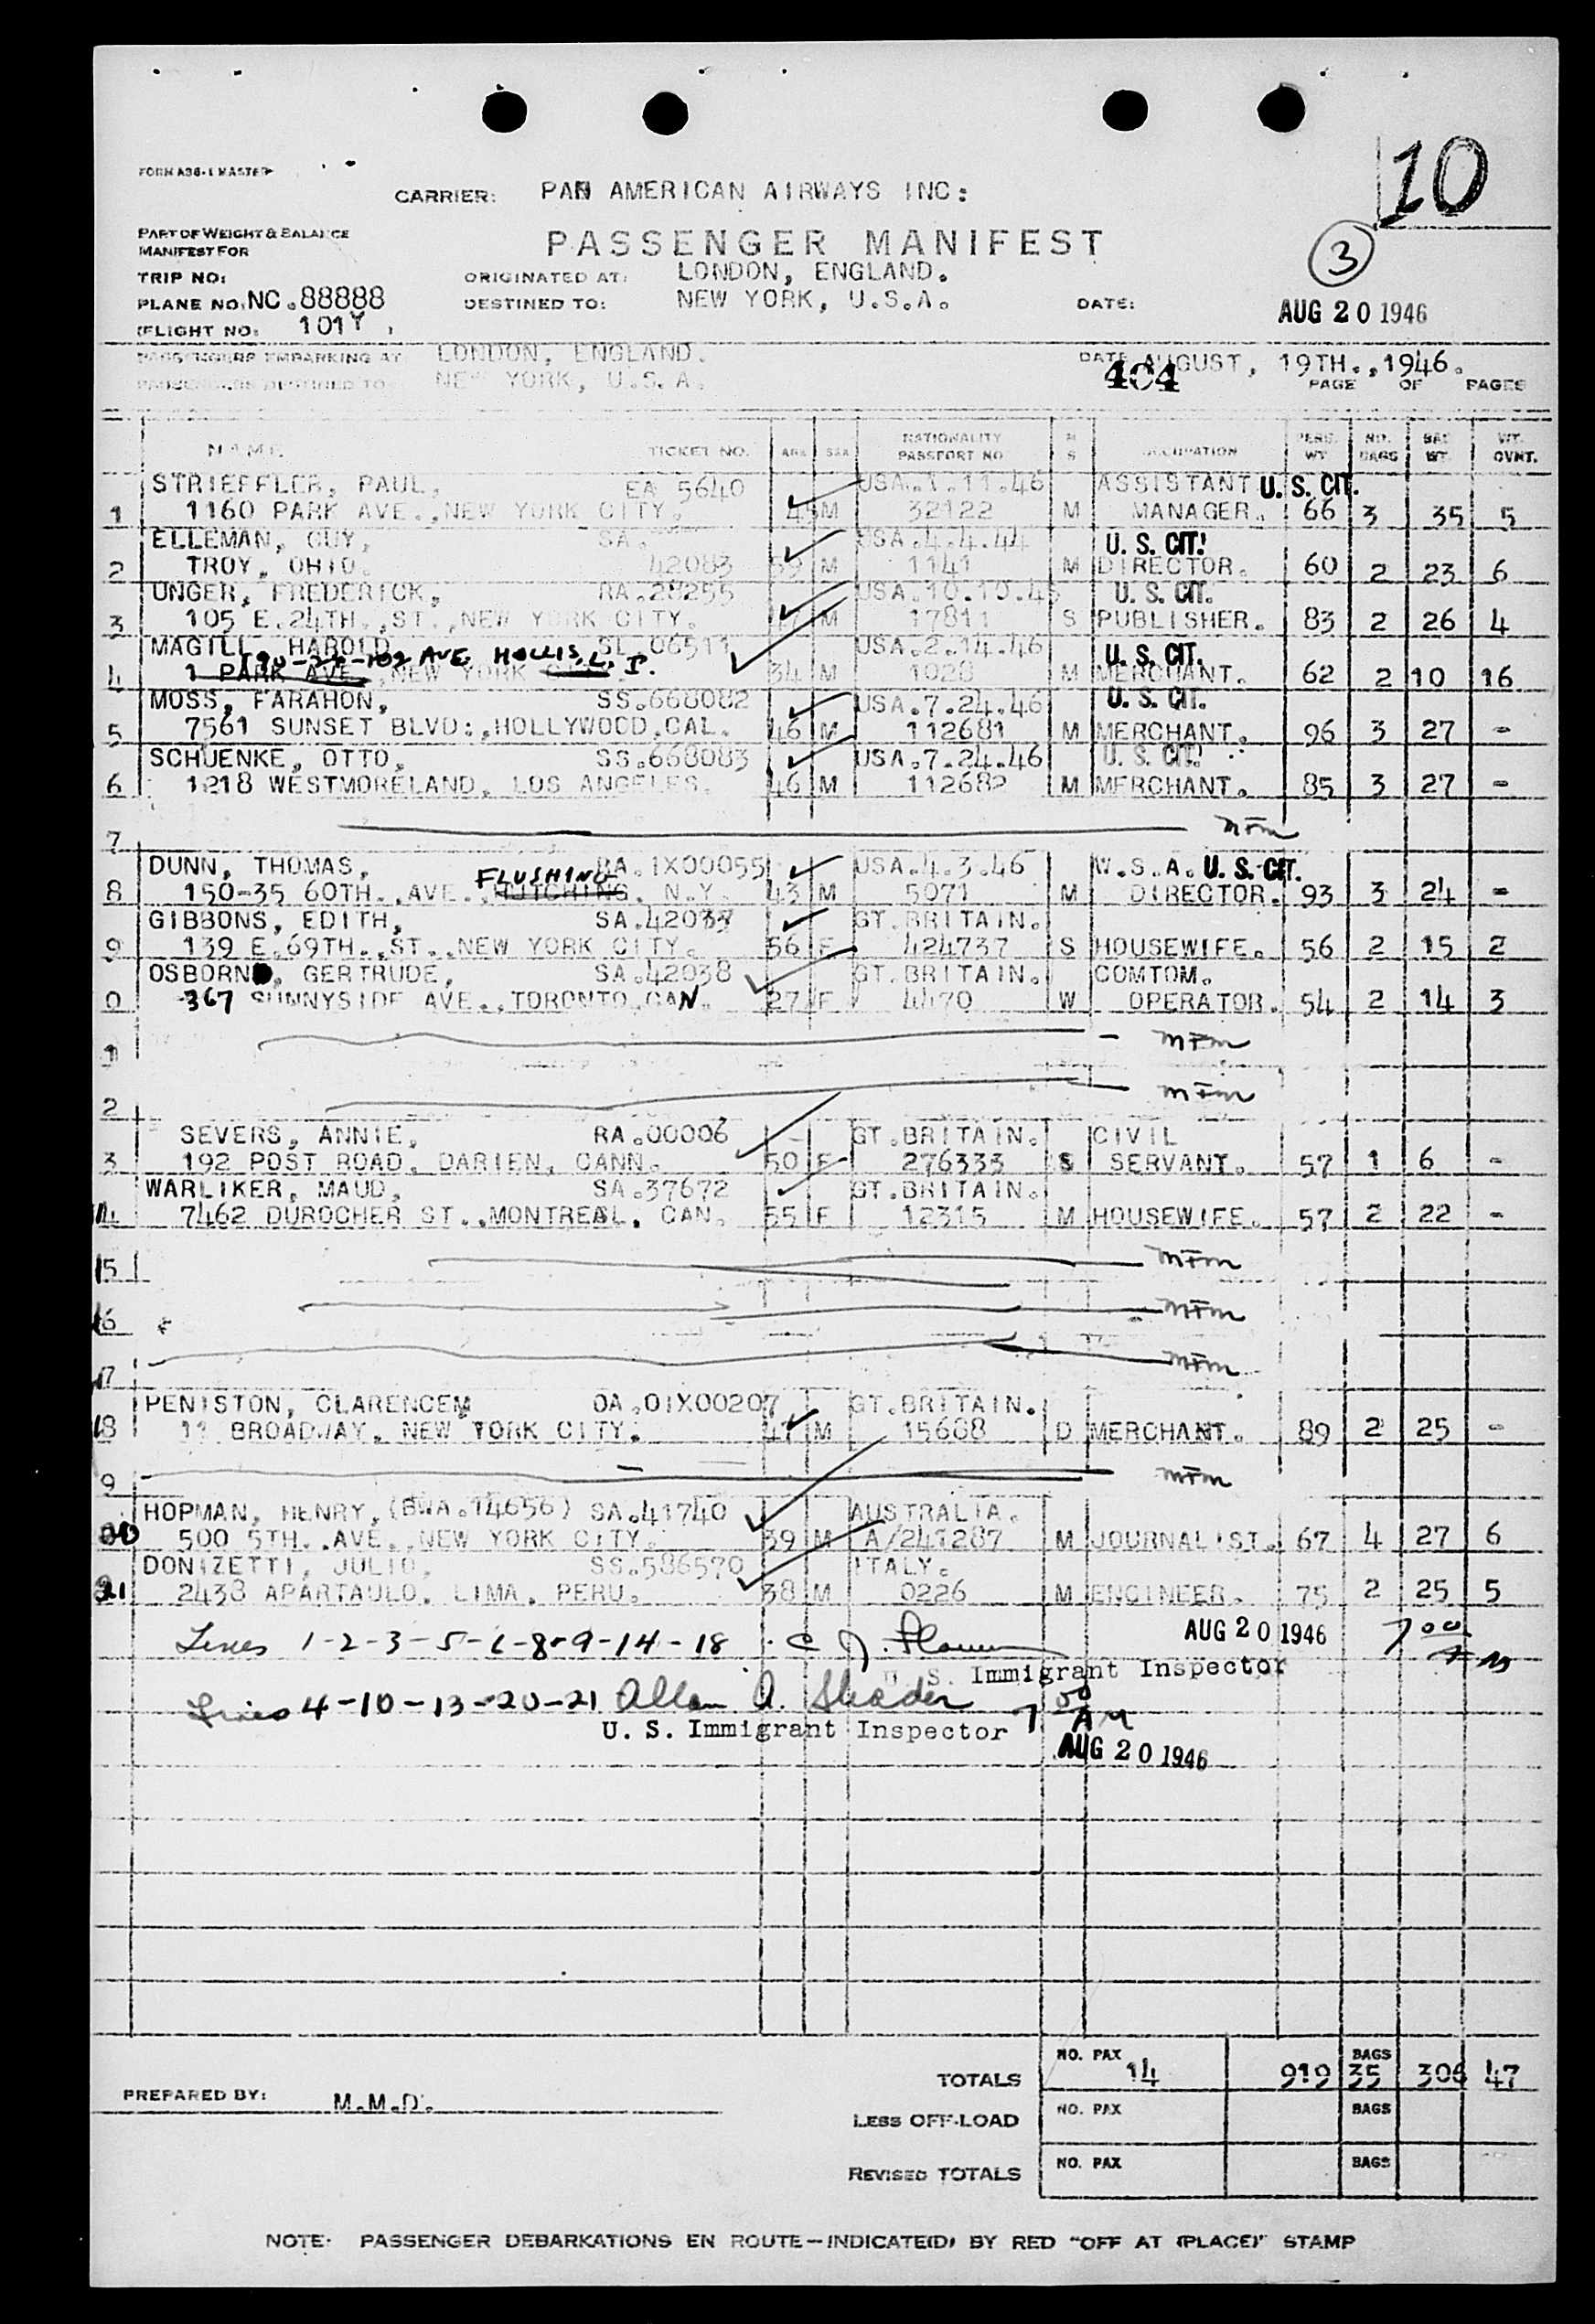 10
FORM ABB-1 MASTER
CARRIER: PAN AMERICAN AIRWAYS INC:
PART OF WEIGHT & BALANCE
MANIFEST FOR
PASSENGER MANIFEST
3
TRIP NO: ORIGINATED AT: LONDON, ENGLAND.
PLANE NO: NC.88888 DESTINED TO: NEW YORK, U.S.A. DATE: AUG 20 1946
FLIGHT NO: 101Y
PASSENGERS EMBARKING AT LONDON, ENGLAND. DATE AUGUST, 19TH.,1946.
PASSENGERS DESTINED TO NEW YORK, U.S.A. 404 PAGE OF PAGES
NAME TICKET NO. AGE SEX NATIONALITY PASSPORT NO M S OCCUPATION PERS. WT NO. BAGS BAG WT. WT. OVNT.
STRIEFFLER, PAUL, EA 5640 USA.1.11.46 ASSISTANT U.S. CIT.
1 1160 PARK AVE.,NEW YORK CITY. 45 M 32122 M MANAGER. 66 3 35 5
ELLEMAN, GUY, SA. USA.4.4.44 U.S. CIT.
2 TROY, OHIO. 42083 59 M 1141 M DIRECTOR. 60 2 23 6
UNGER, FREDERICK, RA.28255 USA.10.10.45 U.S. CIT.
3 105 E.24TH.,ST.,NEW YORK CITY. M 17811 S PUBLISHER. 83 2 26 4
MAGILL, HAROLD SL.06511 USA.2.14.46 U.S. CIT.
190-24-109 AVE HOLLIS, L. I.
4 1 PARK AVE.,NEW YORK 34 M 1028 M MERCHANT. 62 2 10 16
MOSS, FARAHON, SS.668082 USA.7.24.46 U.S. CIT.
5 7561 SUNSET BLVD:,HOLLYWOOD,CAL. 46 M 112681 M MERCHANT. 96 3 27 -
SCHUENKE, OTTO, SS.668083 USA.7.24.46 U.S. CIT.
6 1218 WESTMORELAND, LOS ANGELES. 46 M 112682 M MERCHANT. 85 3 27 -
7 mFm
DUNN, THOMAS, RA.1X00055 USA.4.3.46 W.S.A. U.S. CIT.
FLUSHING
8 150-35 60TH.,AVE.,HUTCHING, N.Y. 43 M 5071 M DIRECTOR. 93 3 24 -
GIBBONS, EDITH, SA.42037 GT.BRITAIN.
9 139 E.69TH.,ST.,NEW YORK CITY. 56 F 424737 S HOUSEWIFE. 56 2 15 2
OSBORN, GERTRUDE, SA.42038 GT.BRITAIN. COMTOM.
0 367 SUNNYSIDE AVE.,TORONTO,CAN. 27 F 4470 W OPERATOR. 54 2 14 3
1 mFm
2 mFm
SEVERS, ANNIE, RA.00006 GT.BRITAIN. CIVIL
3 192 POST ROAD, DARIEN, CANN. 50 F 276333 S SERVANT. 57 1 6 -
WARLIKER, MAUD, SA.37672 GT.BRITAIN.
14 7462 DUROCHER ST.,MONTREAL. CAN. 55 F 12315 M HOUSEWIFE. 57 2 22 -
15 mFm
16 mFm
17 mFm
PENISTON, CLARENCEM OA.01X00207 GT.BRITAIN.
18 11 BROADWAY, NEW YORK CITY. 47 M 15608 D MERCHANT. 89 2 25 -
9 mFm
HOPMAN, HENRY,(BWA.14656) SA.41740 AUSTRALIA.
20 500 5TH.,AVE.,NEW YORK CITY. 39 M A/241287 M JOURNALIST. 67 4 27 6
DONIZETTI, JULIO, SS.586570 ITALY.
21 2438 APARTAULO, LIMA, PERU. 38 M 0226 M ENGINEER. 75 2 25 5
Lines 1-2-3-5-6-8-9-14-18 C J. AUG 20 1946 7 00
U. S. Immigrant Inspector
Lines 4-10-13-20-21 Allan A. Shader 7 00 AM
U. S. Immigrant Inspector
AUG 20 1946
TOTALS NO. PAX 14 919 BAGS 35 306 47
PREPARED BY: M.M.D.
LESS OFF-LOAD NO. PAX BAGS
REVISED TOTALS NO. PAX BAGS
NOTE: PASSENGER DEBARKATIONS EN ROUTE—INDICATE(D) BY RED "OFF AT (PLACE)" STAMP